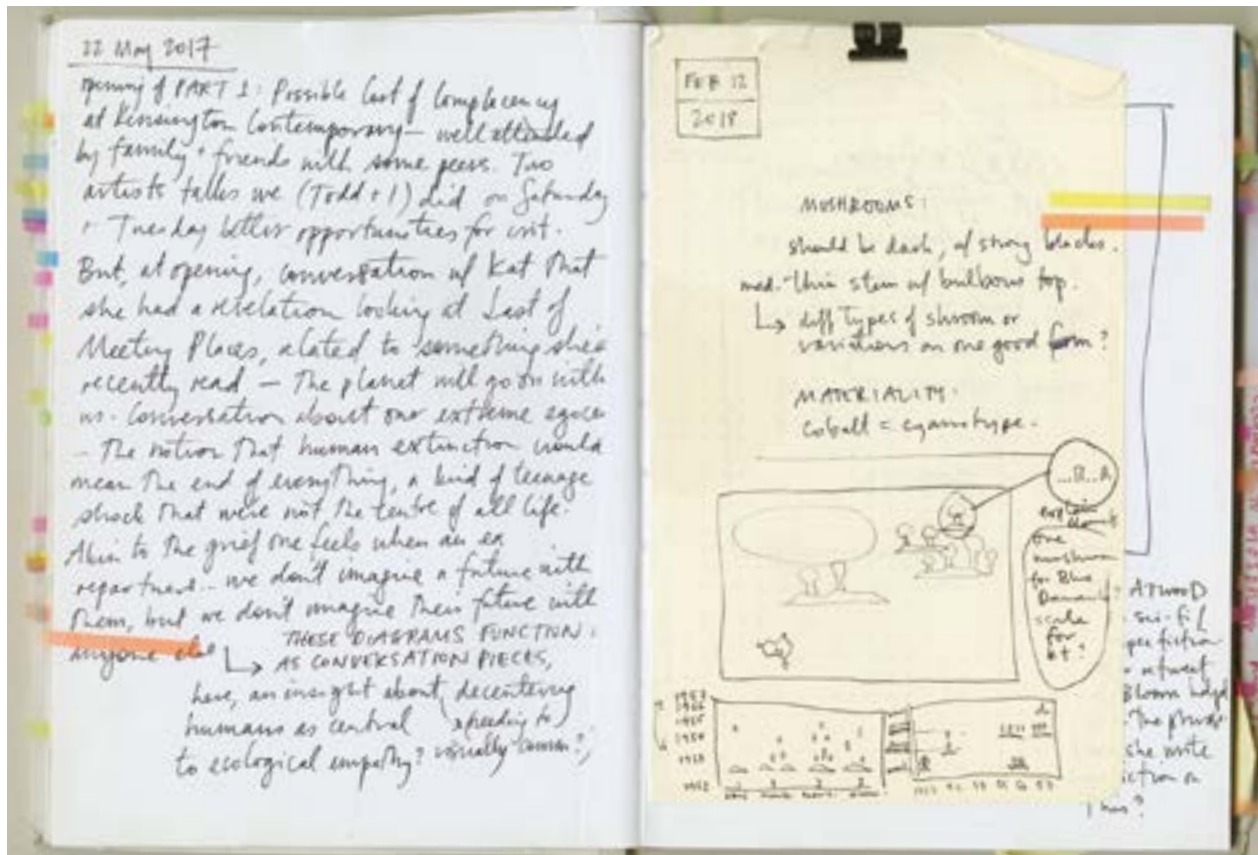 22 May 2017
opening of PART 1: Possible Cost of Complacency
at Kensington Contemporary – well attended
by family + friends with some peers. Two
artists talks we (Todd + I) did on Saturday
+ Tuesday better opportunities for crit.
But, at opening, conversation w/ Kat that
she had a revelation looking at Last of
Meeting Places, related to something she's
recently read – The planet will go on with
us. Conversation about our extreme egoces
– The notion that human extinction would
mean the end of everything, a kind of teenage
shock that we're not the centre of all life.
Akin to the grief one feels when an ex
repartners – we don't imagine a future with
them, but we don't imagine their future with
anyone else
THESE DIAGRAMS FUNCTION
AS CONVERSATION PIECES,
here, an insight about decentering
humans as central
to ecological empathy? visually
FEB 12
2018
MUSHROOMS:
should be dark, w/ strong blacks.
med.-thin stem w/ bulbous top.
diff types of shroom or
variations on one good form?
MATERIALITY.
cobalt = cyanotype.
...B..A
explain
one
mushroom
for Blue
scale
for
it?
1957
1956
1955
1954
1953
1952
ATWOOD
sci-fi/
spec fiction
retweet
Bloom
The
she write
fiction on
this?